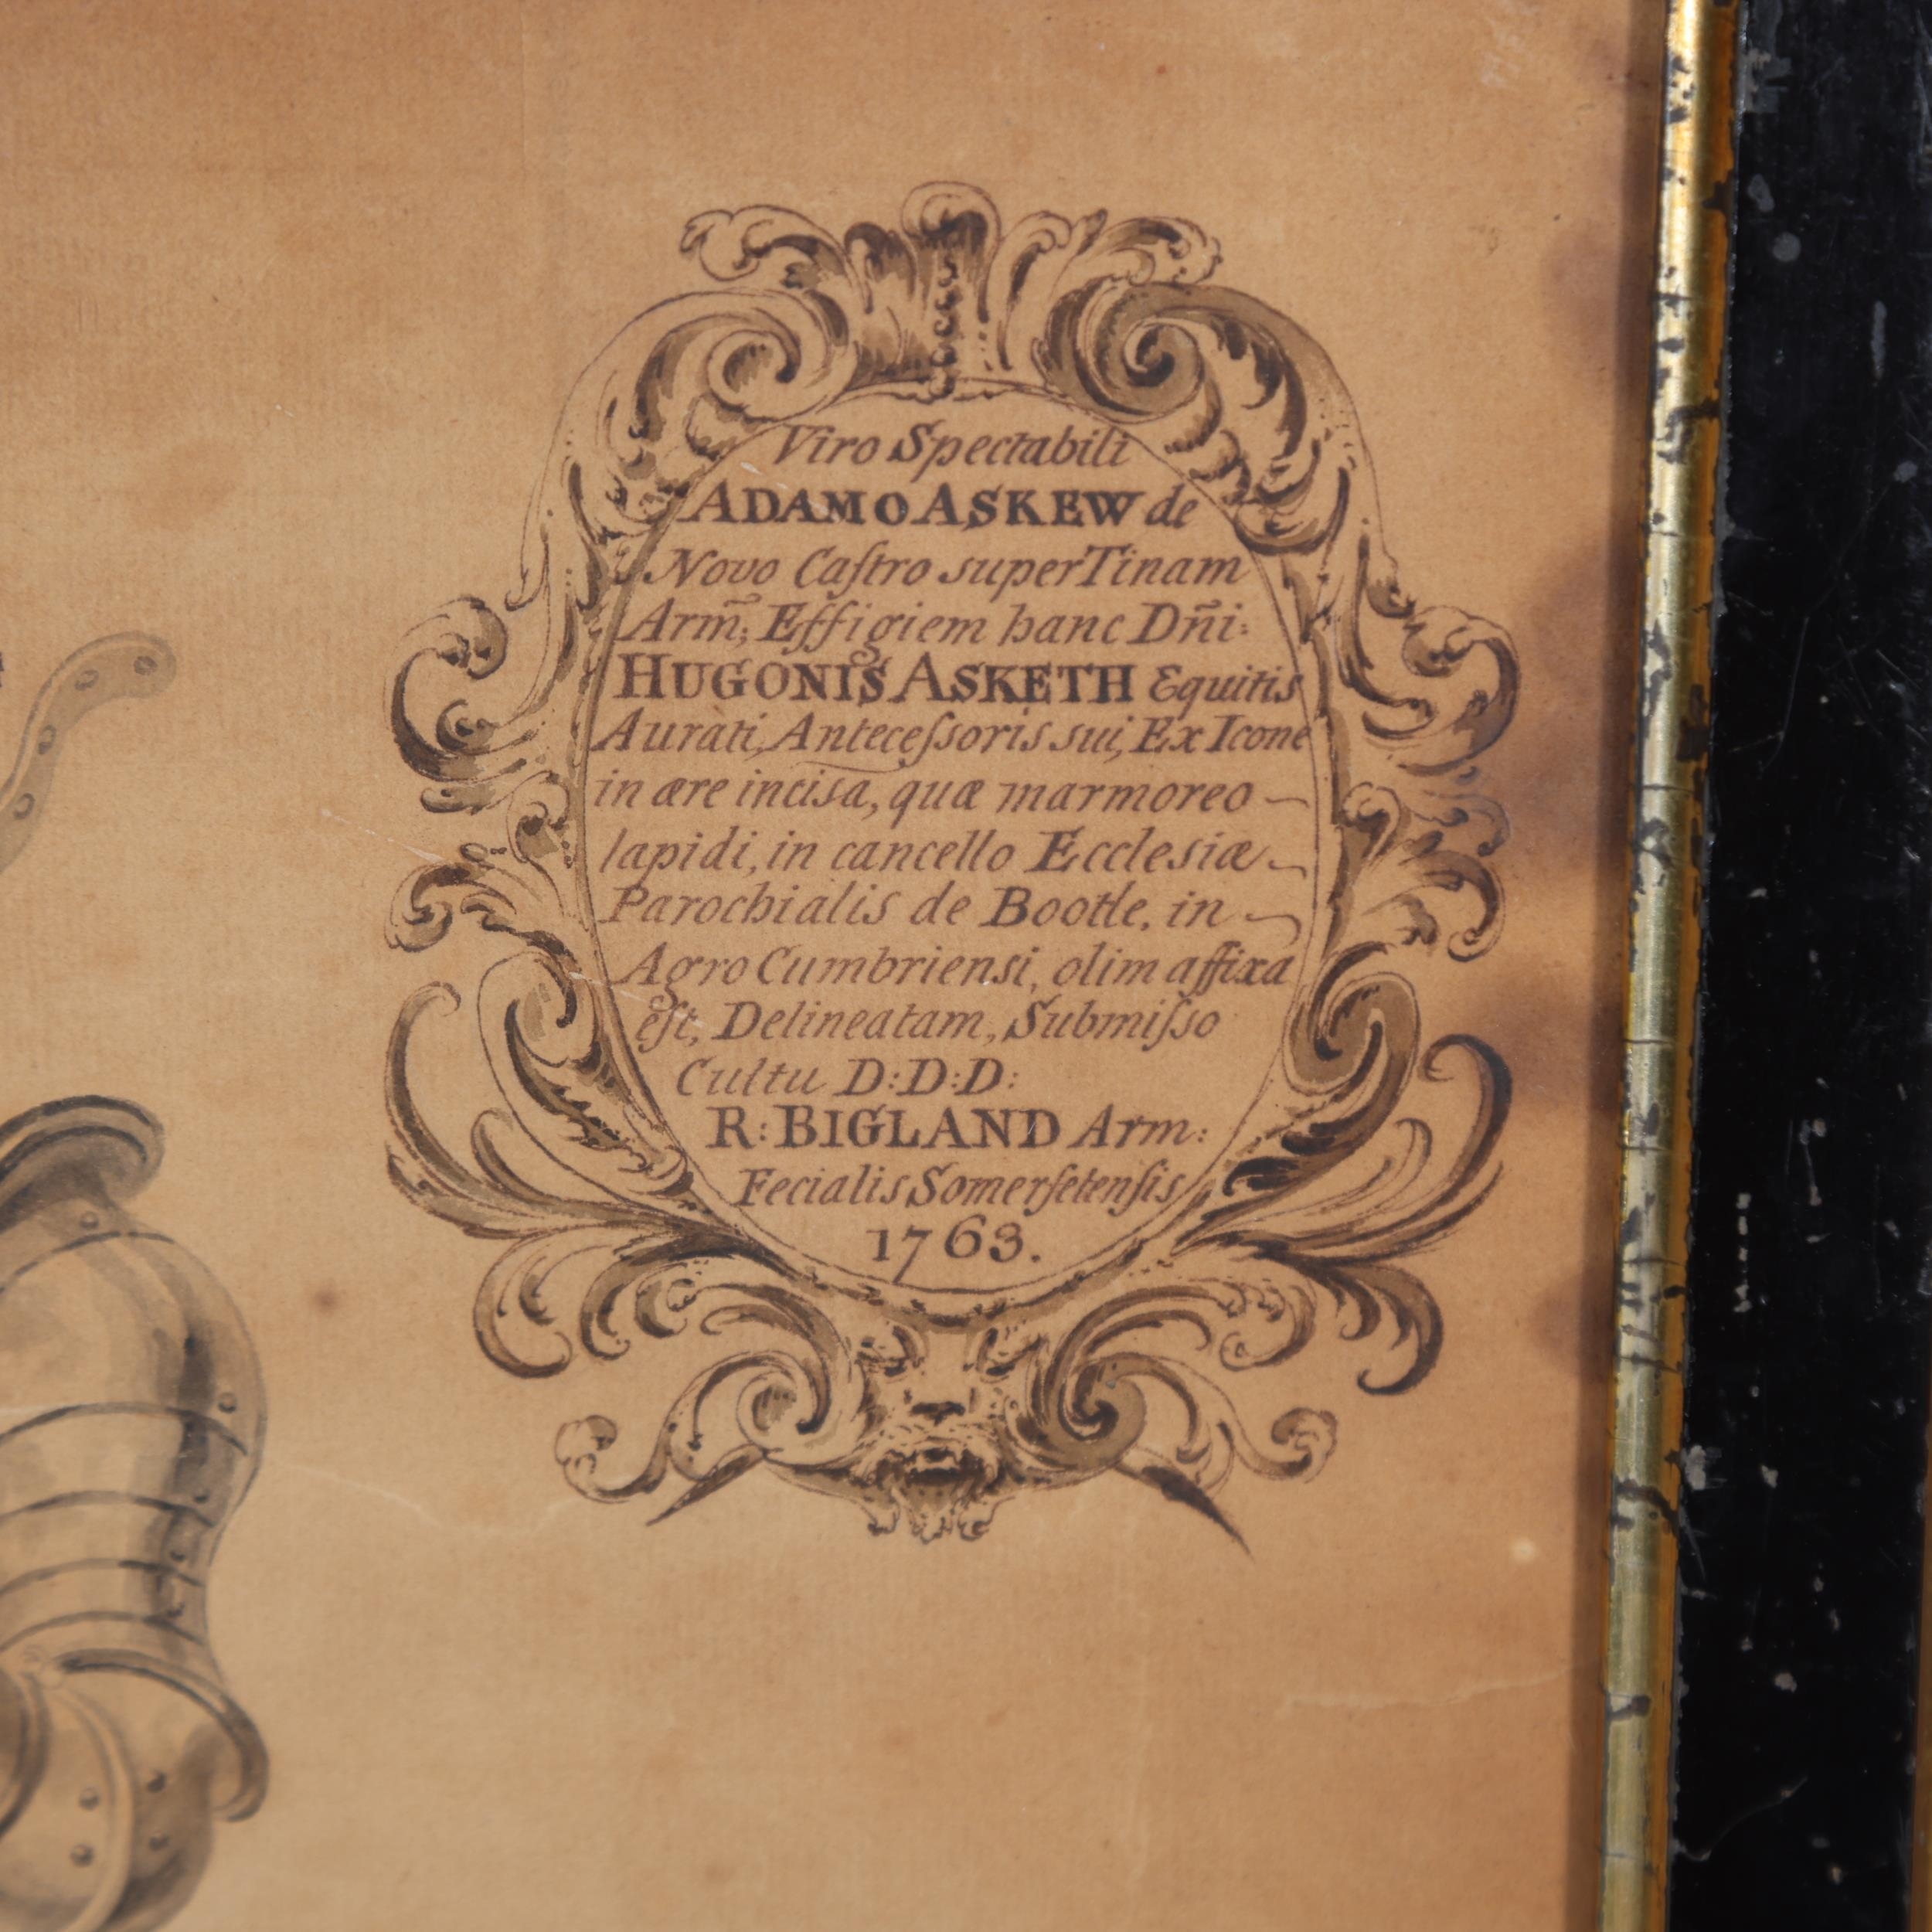 Viro Spectabili
ADAMO ASKEW de
Novo Caſtro super Tinam
Arm̃; Effigiem hanc Dñi:
HUGONIS ASKETH Equitis
Aurati, Anteceſsoris sui, Ex Icone
in ære incisa, quæ marmoreo
lapidi, in cancello Ecclesiæ
Parochialis de Bootle, in
Agro Cumbriensi, olim affixa
eſt, Delineatam, Submiſso
Cultu D:D:D:
R: BIGLAND Arm:
Fecialis Somerſetenſis
1763.